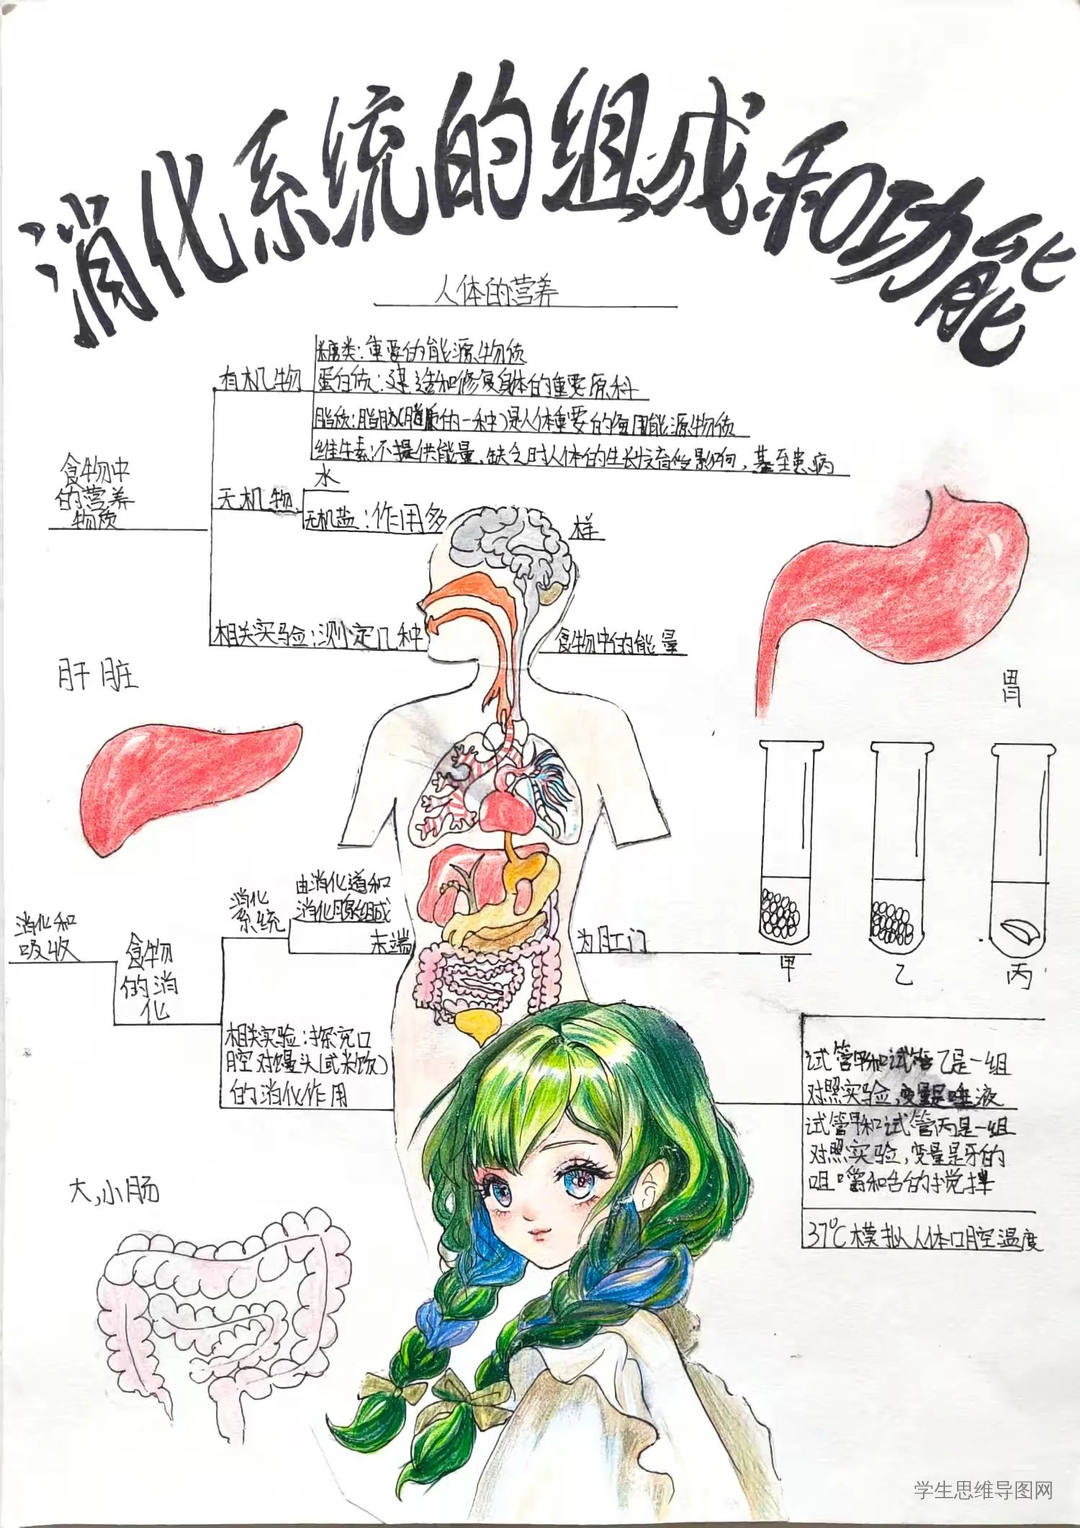 消化系统的组成和功能
人体的营养
食物中
的营养
物质
有机物
糖类:重要的能源物质
蛋白质:建造和修复身体的重要原料
脂质:脂肪(脂质的一种)是人体重要的备用能源物质
维生素:不提供能量,缺乏时人体的生长发育受影响,甚至患病
无机物
水
无机盐:作用多 样
相关实验:测定几种 食物中的能量
肝脏
胃
消化和
吸收
食物
的消
化
消化
系统
由消化道和
消化腺组成
末端 为肛门
相关实验:探究口
腔对馒头(或米饭)
的消化作用
甲
乙
丙
试管甲和试管乙是一组
对照实验,变量是唾液
试管甲和试管丙是一组
对照实验,变量是牙的
咀嚼和舌的搅拌
37℃模拟人体口腔温度
大,小肠
学生思维导图网